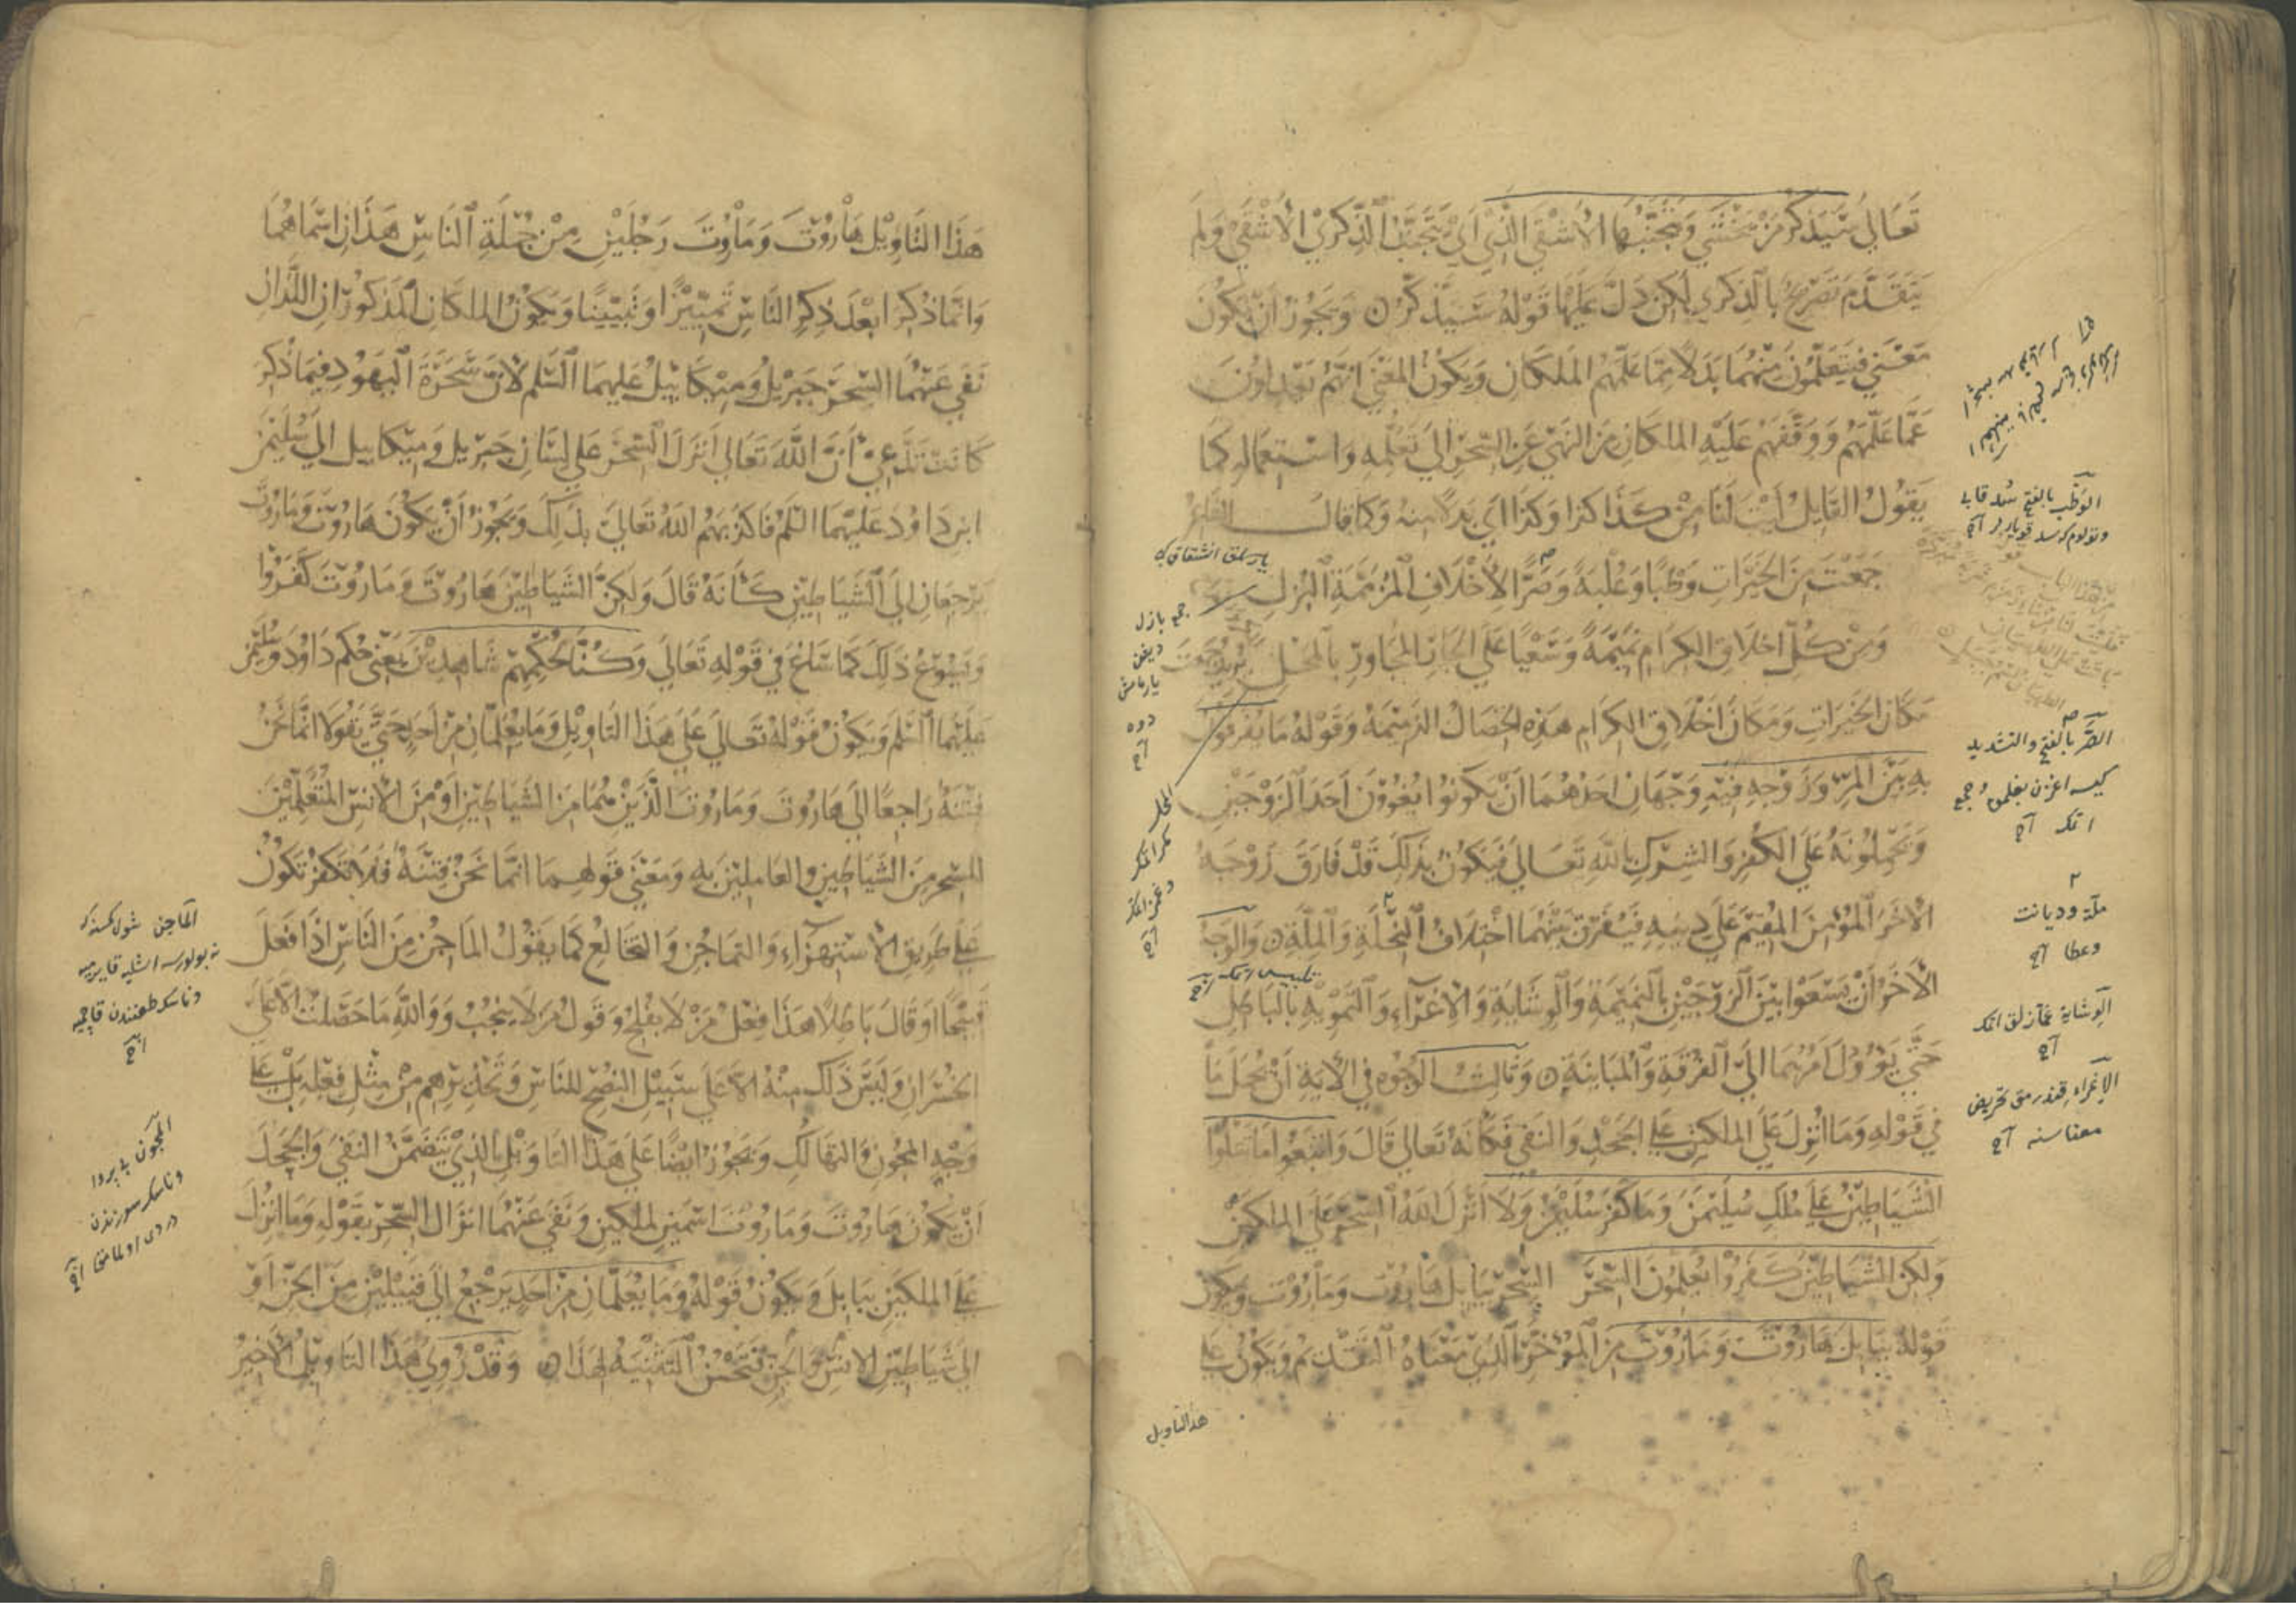 تَعَالَى سَيَذَّكَّرُ مَنْ يَخْشَى وَيَتَجَنَّبُهَا الْأَشْقَى الَّذِي أَيْ يَتَجَنَّبُ الذِّكْرَى الْأَشْقَى وَلَمْ
يَتَقَدَّمْ تَصْرِيحٌ بِالذِّكْرَى لَكِنْ دَلَّ عَلَيْهَا قَوْلُهُ سَيَذَّكَّرُ وَيَجُوزُ أَنْ يَكُونَ
مَعْنَى فَيَتَعَلَّمُونَ مِنْهُمَا بَدَلًا مِمَّا عَلَّمَهُمُ الْمَلَكَانِ وَيَكُونُ الْمَعْنَى أَنَّهُمْ يَعْدِلُونَ
عَمَّا عَلَّمَهُمْ وَوَقَّفَهُمْ عَلَيْهِ الْمَلَكَانِ مِنَ النَّهْيِ عَنِ السِّحْرِ إِلَى تَعَلُّمِهِ وَاسْتِعْمَالِهِ كَمَا
يَقُولُ الْقَايِلُ لَيْتَ لَنَا مِنْ كَذَا كَذَا وَكَذَا أَيْ بَدَلًا مِنْهُ وَكَمَا قَالَ الشَّاعِرُ
جَمَعْتَ مِنَ الْخَيْرَاتِ وَطْبًا وَعُلْبَةً وَصَرًّا لِأَخْلَافِ الْمُزَنَّمَةِ الْبُزْلِ
وَمِنْ كُلِّ أَخْلَاقِ الْكِرَامِ نَمِيمَةً وَسَعْيًا عَلَى الْجَارِ الْمُجَاوِرِ بِالْمَحْلِ يُرِيدُ جَمَعْتَ
مَكَانَ الْخَيْرَاتِ وَمَكَانَ أَخْلَاقِ الْكِرَامِ هَذِهِ الْخِصَالَ الذَّمِيمَةَ وَقَوْلُهُ مَا يُفَرِّقُونَ
بِهِ بَيْنَ الْمَرْءِ وَزَوْجِهِ فِيهِ وَجْهَانِ أَحَدُهُمَا أَنْ يَكُونُوا يُغْوُونَ أَحَدَ الزَّوْجَيْنِ
وَيَحْمِلُونَهُ عَلَى الْكُفْرِ وَالشِّرْكِ بِاللَّهِ تَعَالَى فَيَكُونُ بِذَلِكَ قَدْ فَارَقَ زَوْجَهُ
الْآخَرَ الْمُؤْمِنَ الْمُقِيمَ عَلَى دِينِهِ فَيُفَرِّقُ بَيْنَهُمَا اخْتِلَافُ النِّحْلَةِ وَالْمِلَّةِ وَالْوَجْهُ
الْآخَرُ أَنْ يَسْعَوْا بَيْنَ الزَّوْجَيْنِ بِالنَّمِيمَةِ وَالْوِشَايَةِ وَالْإِغْرَاءِ وَالتَّمْوِيهِ بِالْبَاطِلِ
حَتَّى يَؤُولَ أَمْرُهُمَا إِلَى الْفُرْقَةِ وَالْمُبَايَنَةِ وَثَالِثُ الْوُجُوهِ فِي الْآيَةِ أَنْ يُحْمَلَ مَا
فِي قَوْلِهِ وَمَا أُنْزِلَ عَلَى الْمَلَكَيْنِ عَلَى الْجَحْدِ وَالنَّفْيِ فَكَأَنَّهُ تَعَالَى قَالَ وَاتَّبَعُوا مَا تَتْلُوا
الشَّيَاطِينُ عَلَى مُلْكِ سُلَيْمَنَ وَمَا كَفَرَ سُلَيْمَنُ وَلَا أَنْزَلَ اللَّهُ السِّحْرَ عَلَى الْمَلَكَيْنِ
وَلَكِنَّ الشَّيَاطِينَ كَفَرُوا يُعَلِّمُونَ السِّحْرَ السِّحْرَ بِبَابِلَ هَارُوتَ وَمَارُوتَ وَيَكُونُ
قَوْلُهُ بِبَابِلَ هَارُوتَ وَمَارُوتَ مِنَ الْمُؤَخَّرِ الَّذِي مَعْنَاهُ التَّقْدِيمُ وَيَكُونُ عَلَى
هذا التاويل
الوطب بالفتح
الصر بالفتح والتشديد
ملة وديانت
وعطا
الوشاية غمازلق اتمك
الاغراء قندرمق تحريض
معناسنه
هَذَا التَّاوِيلِ هَارُوتَ وَمَارُوتَ رَجُلَيْنِ مِنْ جُمْلَةِ النَّاسِ هَذَانِ اسْمَاهُمَا
وَإِنَّمَا ذُكِرَا بَعْدَ ذِكْرِ النَّاسِ تَمْيِيزًا وَتَبْيِينًا وَيَكُونُ الْمَلَكَانِ الْمَذْكُورَانِ اللَّذَانِ
نَفَى عَنْهُمَا السِّحْرَ جَبْرِيلَ وَمِيكَايِيلَ عَلَيْهِمَا السَّلَمُ لِأَنَّ سَحَرَةَ الْيَهُودِ فِيمَا ذُكِرَ
كَانَتْ تَدَّعِي أَنَّ اللَّهَ تَعَالَى أَنْزَلَ السِّحْرَ عَلَى لِسَانِ جَبْرِيلَ وَمِيكَايِيلَ إِلَى سُلَيْمَنَ
ابْنِ دَاوُدَ عَلَيْهِمَا السَّلَمُ فَأَكْذَبَهُمُ اللَّهُ تَعَالَى بِذَلِكَ وَيَجُوزُ أَنْ يَكُونَ هَارُوتَ وَمَارُوتَ
يَرْجِعَانِ إِلَى الشَّيَاطِينِ كَأَنَّهُ قَالَ وَلَكِنَّ الشَّيَاطِينَ هَارُوتَ وَمَارُوتَ كَفَرُوا
وَيَسُوغُ ذَلِكَ كَمَا سَاغَ فِي قَوْلِهِ تَعَالَى وَكُنَّا لِحُكْمِهِمْ شَاهِدِينَ يَعْنِي حُكْمَ دَاوُدَ وَسُلَيْمَنَ
عَلَيْهِمَا السَّلَمُ وَيَكُونُ قَوْلُهُ تَعَالَى عَلَى هَذَا التَّاوِيلِ وَمَا يُعَلِّمَانِ مِنْ أَحَدٍ حَتَّى يَقُولَا إِنَّمَا نَحْنُ
فِتْنَةٌ رَاجِعًا إِلَى هَارُوتَ وَمَارُوتَ اللَّذَيْنِ هُمَا مِنَ الشَّيَاطِينِ أَوْ مِنَ الْإِنْسِ الْمُتَعَلِّمِينَ
لِلسِّحْرِ مِنَ الشَّيَاطِينِ وَالْعَامِلِينَ بِهِ وَمَعْنَى قَوْلِهِمَا إِنَّمَا نَحْنُ فِتْنَةٌ فَلَا تَكْفُرْ تَكُونُ
عَلَى طَرِيقِ الْاسْتِهْزَاءِ وَالتَّمَاجُنِ وَالتَّخَالُعِ كَمَا يَقُولُ الْمَاجِنُ مِنَ النَّاسِ إِذَا فَعَلَ
قَبِيحًا أَوْ قَالَ بَاطِلًا هَذَا فِعْلُ مَنْ لَا يُفْلِحُ وَقَوْلُ مَنْ لَا يُنْجِبُ وَوَاللَّهِ مَا حَصَلْتُ إِلَّا عَلَى
الْخُسْرَانِ وَلَيْسَ ذَلِكَ مِنْهُ إِلَّا عَلَى سَبِيلِ النُّصْحِ لِلنَّاسِ وَتَحْذِيرِهِمْ مِنْ مِثْلِ فِعْلِهِ بَلْ عَلَى
وَجْهِ الْمُجُونِ وَالتَّهَالُكِ وَيَجُوزُ أَيْضًا عَلَى هَذَا التَّاوِيلِ الَّذِي يَتَضَمَّنُ النَّفْيَ وَالْجَحْدَ
أَنْ يَكُونَ هَارُوتَ وَمَارُوتَ اسْمَيْنِ لِمَلَكَيْنِ وَنَفَى عَنْهُمَا انْزَالَ السِّحْرِ بِقَوْلِهِ وَمَا أُنْزِلَ
عَلَى الْمَلَكَيْنِ بِبَابِلَ وَيَكُونُ قَوْلُهُ وَمَا يُعَلِّمَانِ مِنْ أَحَدٍ يَرْجِعُ إِلَى قَبِيلَيْنِ مِنَ الْجِنِّ أَوْ
إِلَى شَيَاطِينِ الْإِنْسِ وَالْجِنِّ فَتَحْسُنُ التَّثْنِيَةُ لِهَذَا وَقَدْ رُوِيَ هَذَا التَّاوِيلُ الْأَخِيرُ